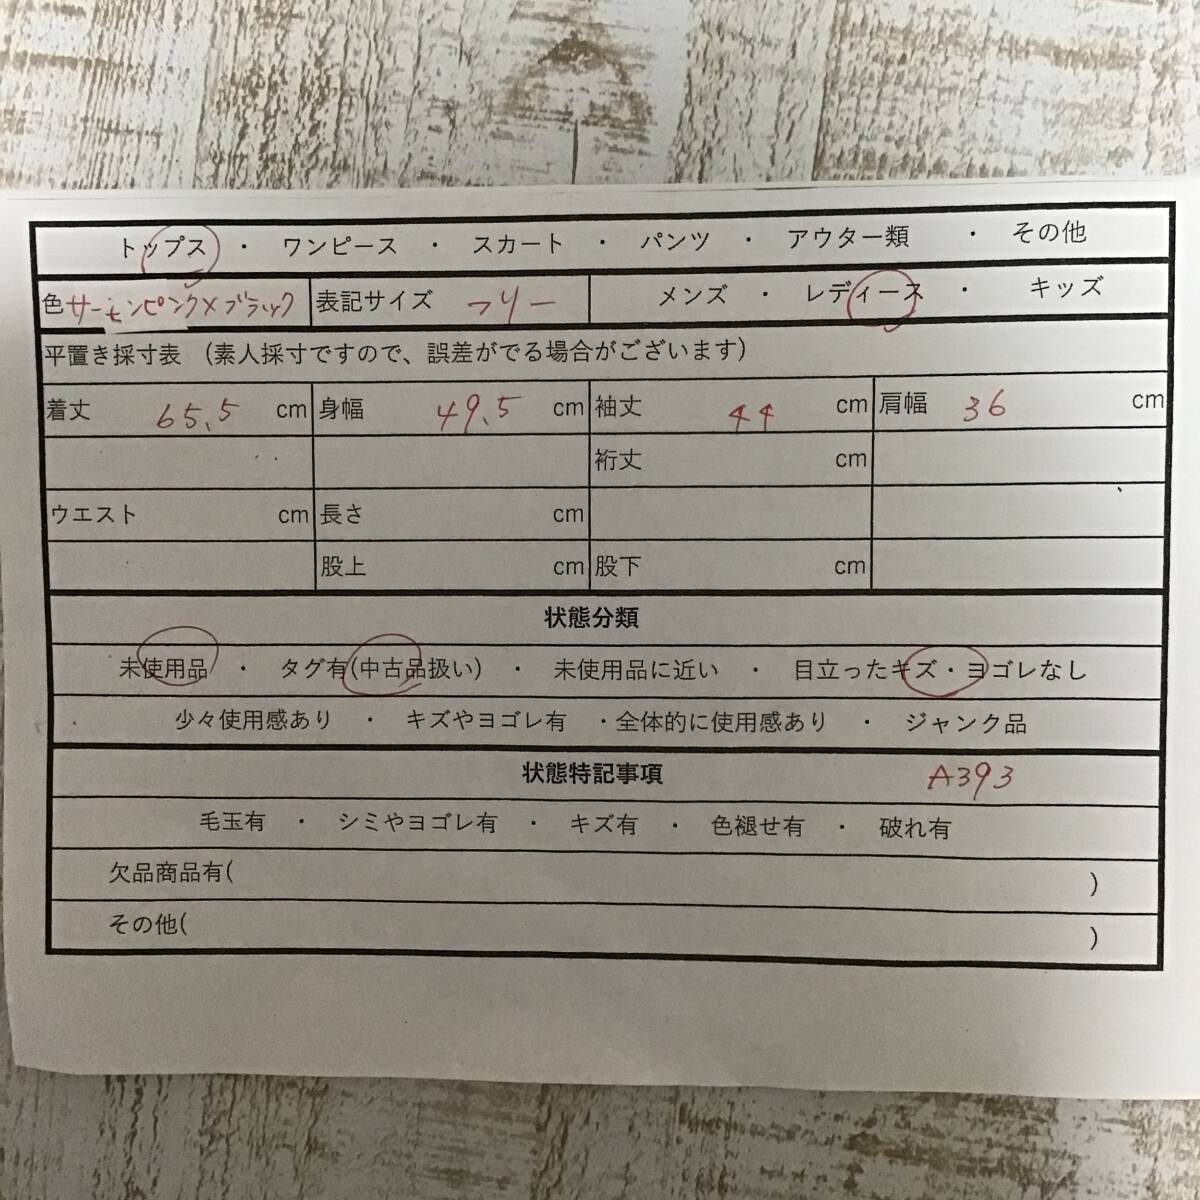 トップス ・ ワンピース ・ スカート ・ パンツ ・ アウター類 ・ その他
色 サーモンピンク×ブラック 表記サイズ フリー メンズ ・ レディース ・ キッズ
平置き採寸表 （素人採寸ですので、誤差がでる場合がございます）
着丈 65.5 cm 身幅 49.5 cm 袖丈 44 cm 肩幅 36 cm
裄丈 cm
ウエスト cm 長さ cm
股上 cm 股下 cm
状態分類
未使用品 ・ タグ有(中古品扱い) ・ 未使用品に近い ・ 目立ったキズ・ヨゴレなし
少々使用感あり ・ キズやヨゴレ有 ・全体的に使用感あり ・ ジャンク品
状態特記事項 A393
毛玉有 ・ シミやヨゴレ有 ・ キズ有 ・ 色褪せ有 ・ 破れ有
欠品商品有( )
その他( )